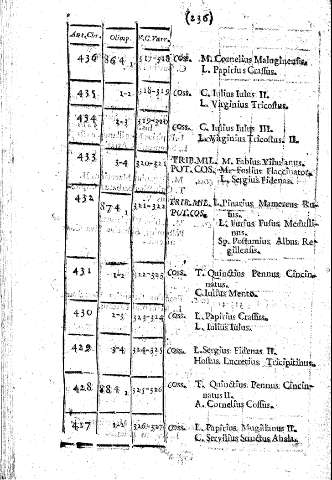 (236)
Ant. Chr. Olimp. V.C. Varr.
436 864, 317-318 Coss. M. Cornelius Maluginensis.
L. Papirius Crassus.
435 1-2 318-319 Coss. C. Iulius Iulus II.
L. Virginius Tricostus.
434 2-3 319-320 Coss. C. Iulius Iulus III.
L. Virginius Tricostus. II.
433 3-4 320-321 TRIB. MIL. M. Fabius Vibulanus.
PUT. COS. M. Foslius Flaccinator.
L. Sergius Fidenas.
432 874, 321-322 TRIB. MIL. L. Pinarius Mamercus Ru-
PUT. COS. fus.
L. Furius Fusus Medulli-
nus.
Sp. Postumius Albus Re-
gillensis.
431 1-2 322-323 Coss. T. Quinctius Pennus Cincin-
natus.
C. Iulius Mento.
430 2-3 323-324 Coss. L. Papirius Crassus.
L. Iulius Iulus.
429 3-4 324-325 Coss. L. Sergius Fidenas II.
Hostus Lucretius Tricipitinus.
428 884, 325-326 Coss. T. Quinctius Pennus Cincin-
natus II.
A. Cornelius Cossus.
427 1-2 326-327 Coss. L. Papirius Mugillanus II.
C. Servilius Structus Ahala.